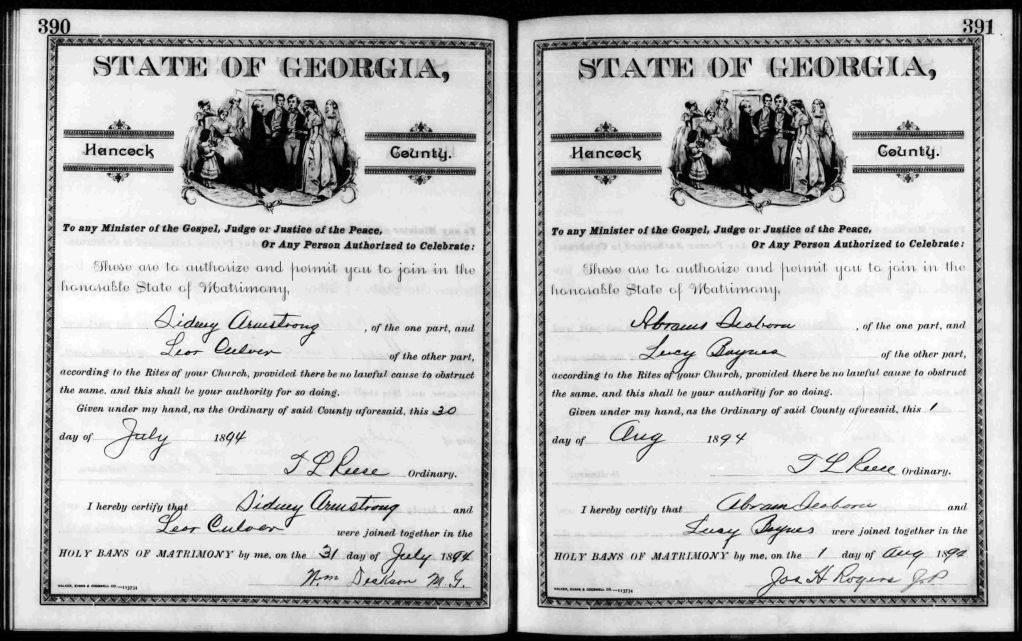 390
STATE OF GEORGIA,
Hancock County.
To any Minister of the Gospel, Judge or Justice of the Peace,
Or Any Person Authorized to Celebrate:
These are to authorize and permit you to join in the
honorable State of Matrimony,
Sidney Armstrong, of the one part, and
Leor Culver of the other part,
according to the Rites of your Church, provided there be no lawful cause to obstruct
the same, and this shall be your authority for so doing.
Given under my hand, as the Ordinary of said County aforesaid, this 30
day of July 1894
T L Reese Ordinary.
I hereby certify that Sidney Armstrong and
Leor Culver were joined together in the
HOLY BANS OF MATRIMONY by me, on the 31 day of July 1894
Wm Dickson M. G.
WALKER, EVANS & COGSWELL CO.—113734
391
STATE OF GEORGIA,
Hancock County.
To any Minister of the Gospel, Judge or Justice of the Peace,
Or Any Person Authorized to Celebrate:
These are to authorize and permit you to join in the
honorable State of Matrimony,
Abrams Seaborn, of the one part, and
Lucy Baynes of the other part,
according to the Rites of your Church, provided there be no lawful cause to obstruct
the same, and this shall be your authority for so doing.
Given under my hand, as the Ordinary of said County aforesaid, this 1
day of Aug 1894
T L Reese Ordinary.
I hereby certify that Abram Seaborn and
Lucy Baynes were joined together in the
HOLY BANS OF MATRIMONY by me, on the 1 day of Aug 1894
Jos H Rogers J.P.
WALKER, EVANS & COGSWELL CO.—113734